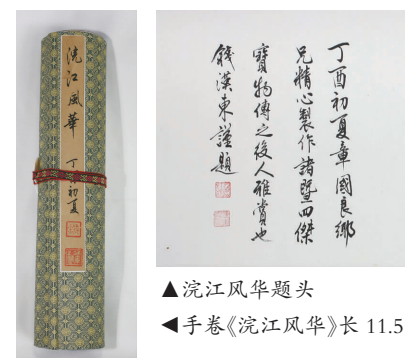 浣江風華 丁酉初夏
丁酉初夏章國良鄉
兄精心製作諸暨四傑
寶物傳之後人雅賞也
錢漢東謹題
▲浣江风华题头
◀手卷《浣江风华》长 11.5